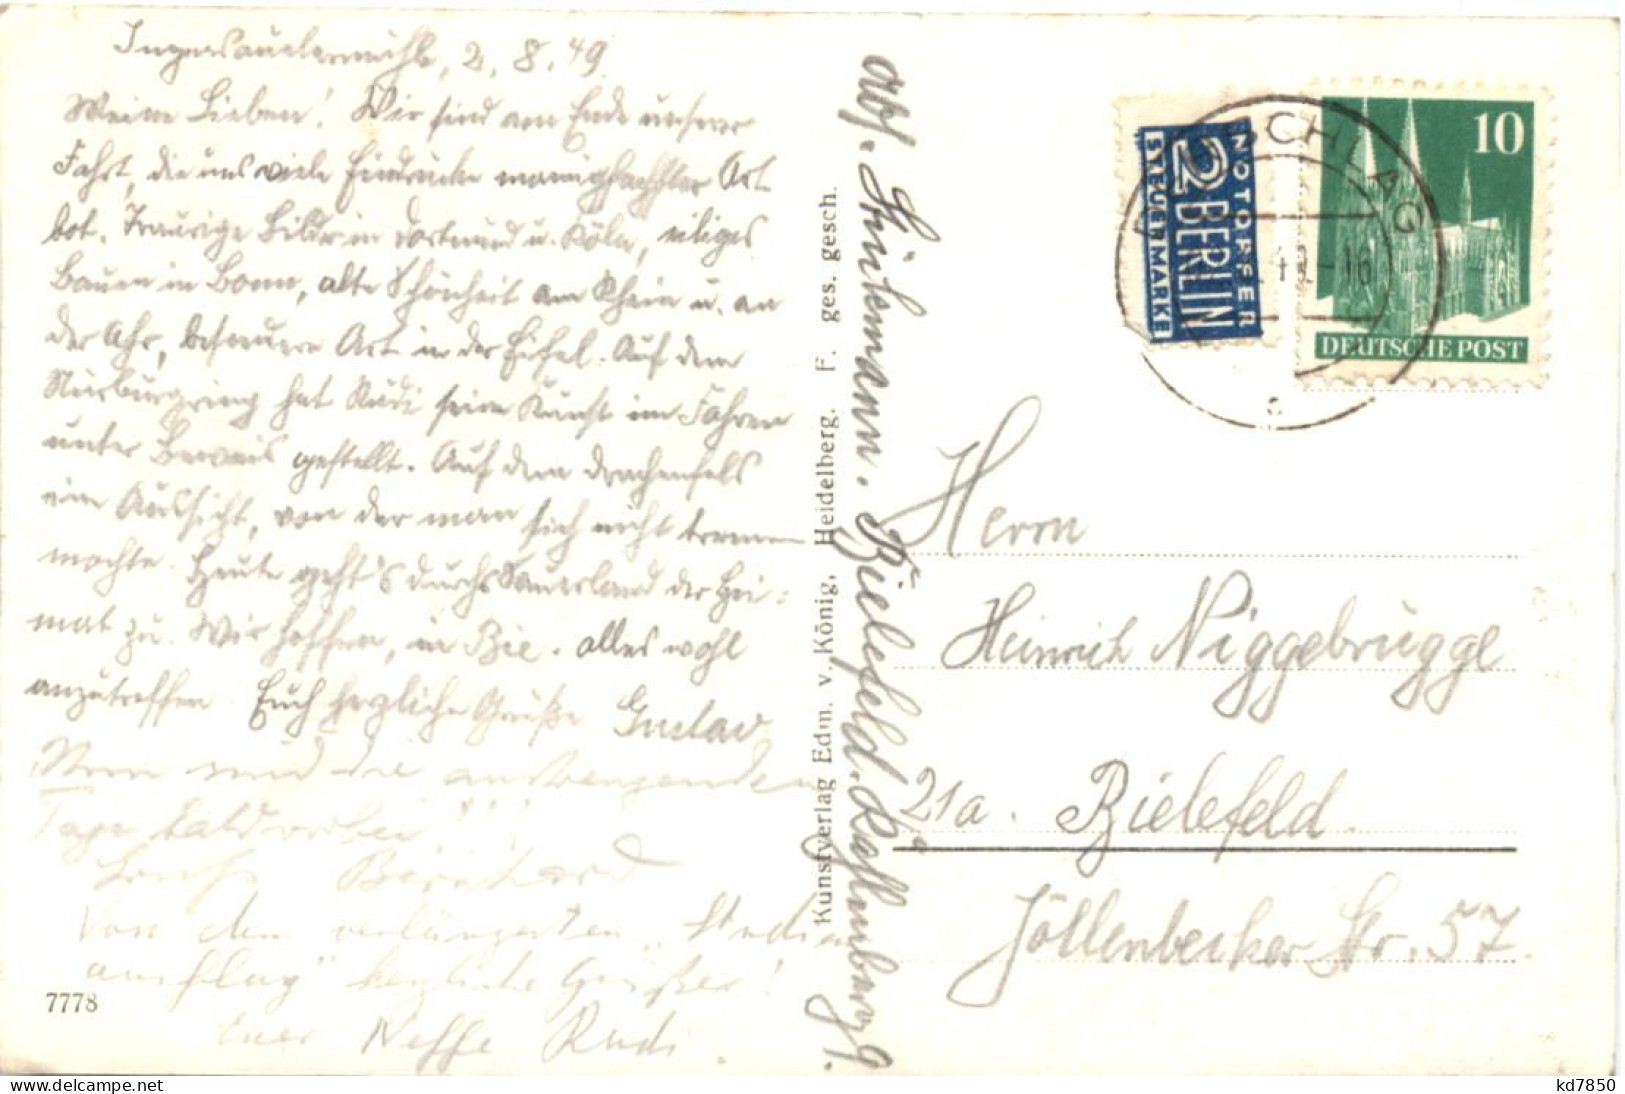 Ingersauelermühle, 2. 8. 49
Meine Lieben! Wir sind am Ende unserer
Fahrt, die uns viele Eindrücke mannigfachster Art
bot. Traurige Bilder in Dortmund u. Köln, eiliges
Bauen in Bonn, alte Schönheit am Rhein u. an
der Ahr, besonnene Art in der Eifel. Auf dem
Nürburgring hat Rudi seine Kunst im Fahren
unter Beweis gestellt. Auf dem Drachenfels
eine Aussicht, von der man sich nicht trennen
mochte. Heute geht's durchs Sauerland der Hei-
mat zu. Wir hoffen, in Bie. alles wohl
anzutreffen. Euch herzliche Grüße Gustav
Nun sind die anstrengenden
Tage bald vorbei!!!
Bernhard
Von dem verlängerten „Studien
ausflug" herzliche Grüße!
Euer Neffe Rudi.
7778
Kunstverlag Edm. v. König, Heidelberg. F. ges. gesch.
Abs. Stückemann. Bielefeld.
NOTOPFER
2 BERLIN
STEUERMARKE
10
DEUTSCHE POST
SCHLAG
49.-16
c
Herrn
Heinrich Niggebrügge
21a. Bielefeld.
Jöllenbecker Str. 57.
kd7850